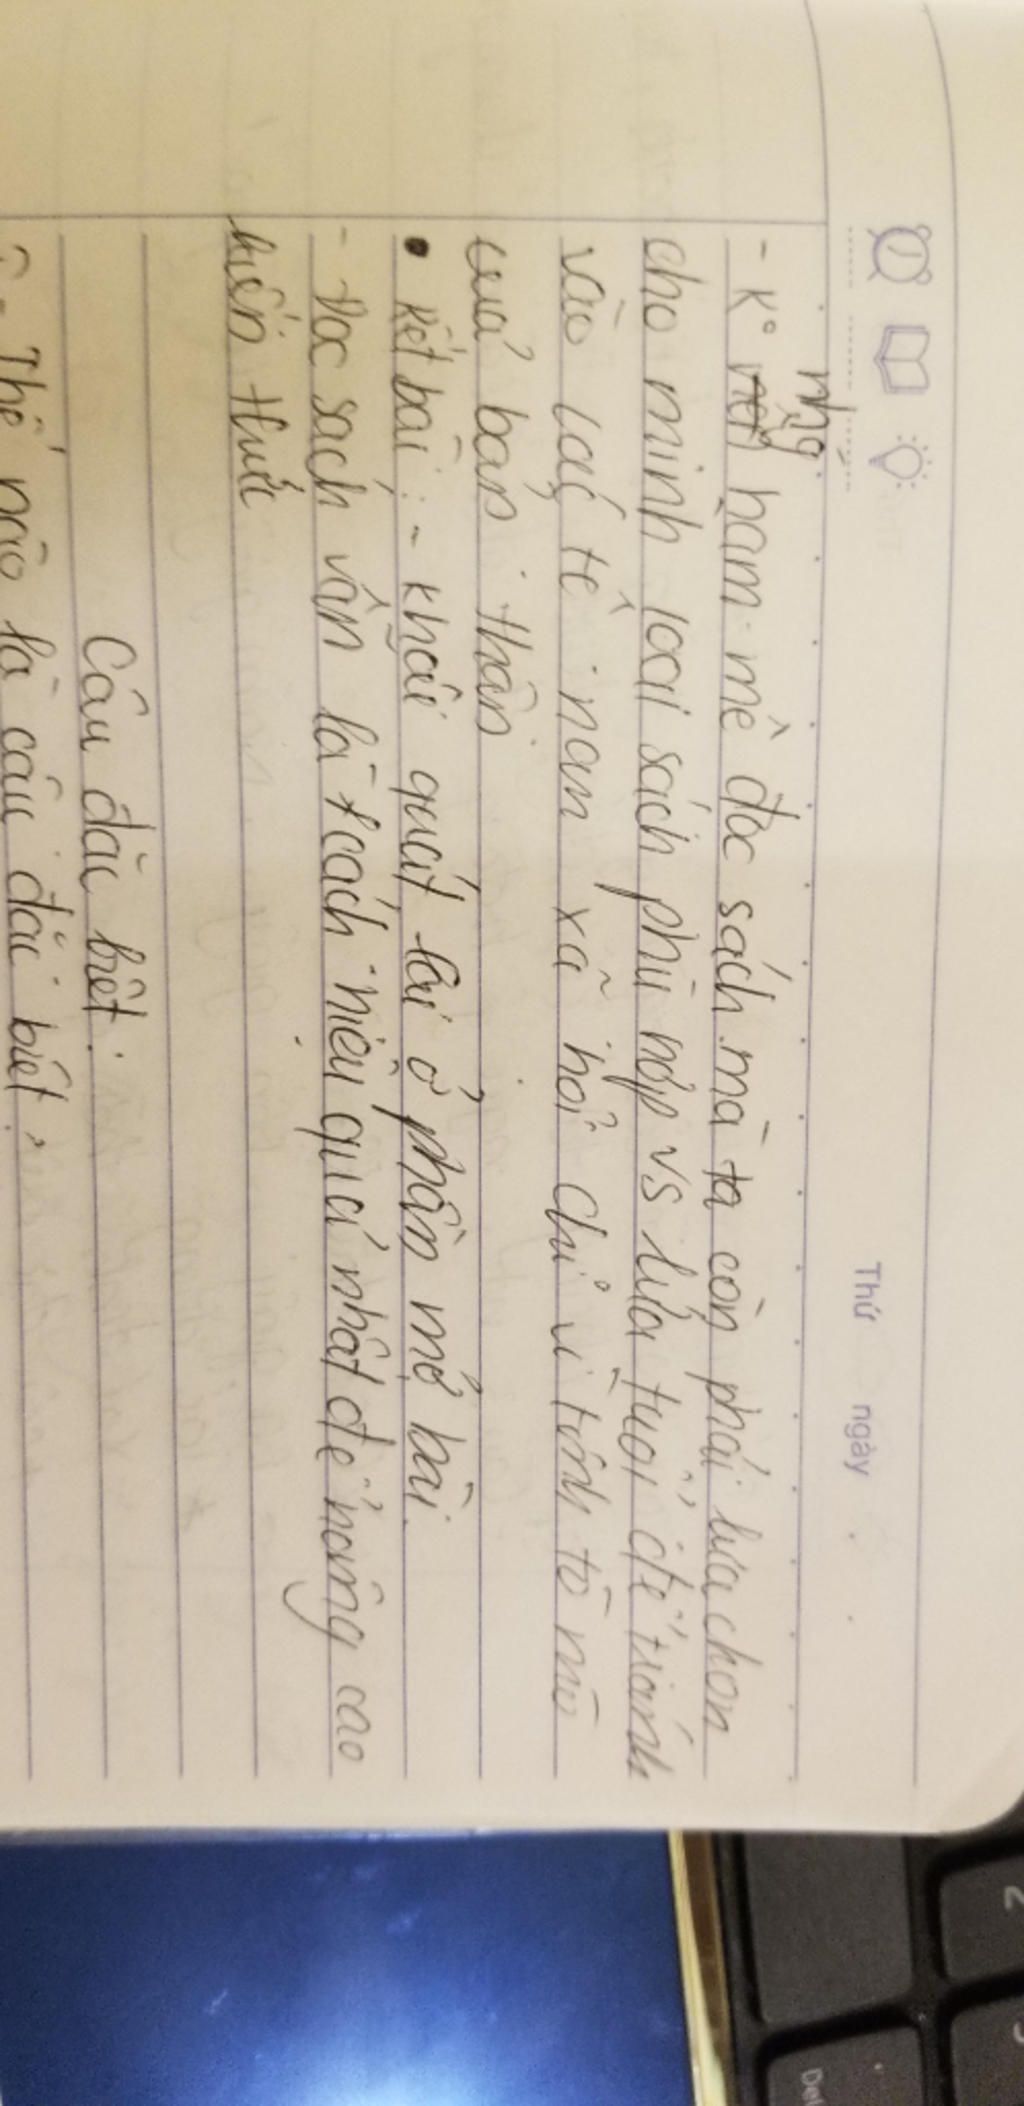 Thứ ngày
nhg
- K° ham mê đọc sách mà ta còn phải lựa chọn
cho mình loại sách phù hợp vs lứa tuổi để tránh
vào các tệ nạn xã hội chỉ vì tính tò mò
của bản thân
• Kết bài: - Khái quát lại ở phần mở bài.
- Đọc sách vẫn là cách hiệu quả nhất để nâng cao
kiến thức
Câu đặc biệt:
Thế nào là câu đặc biệt?
Del